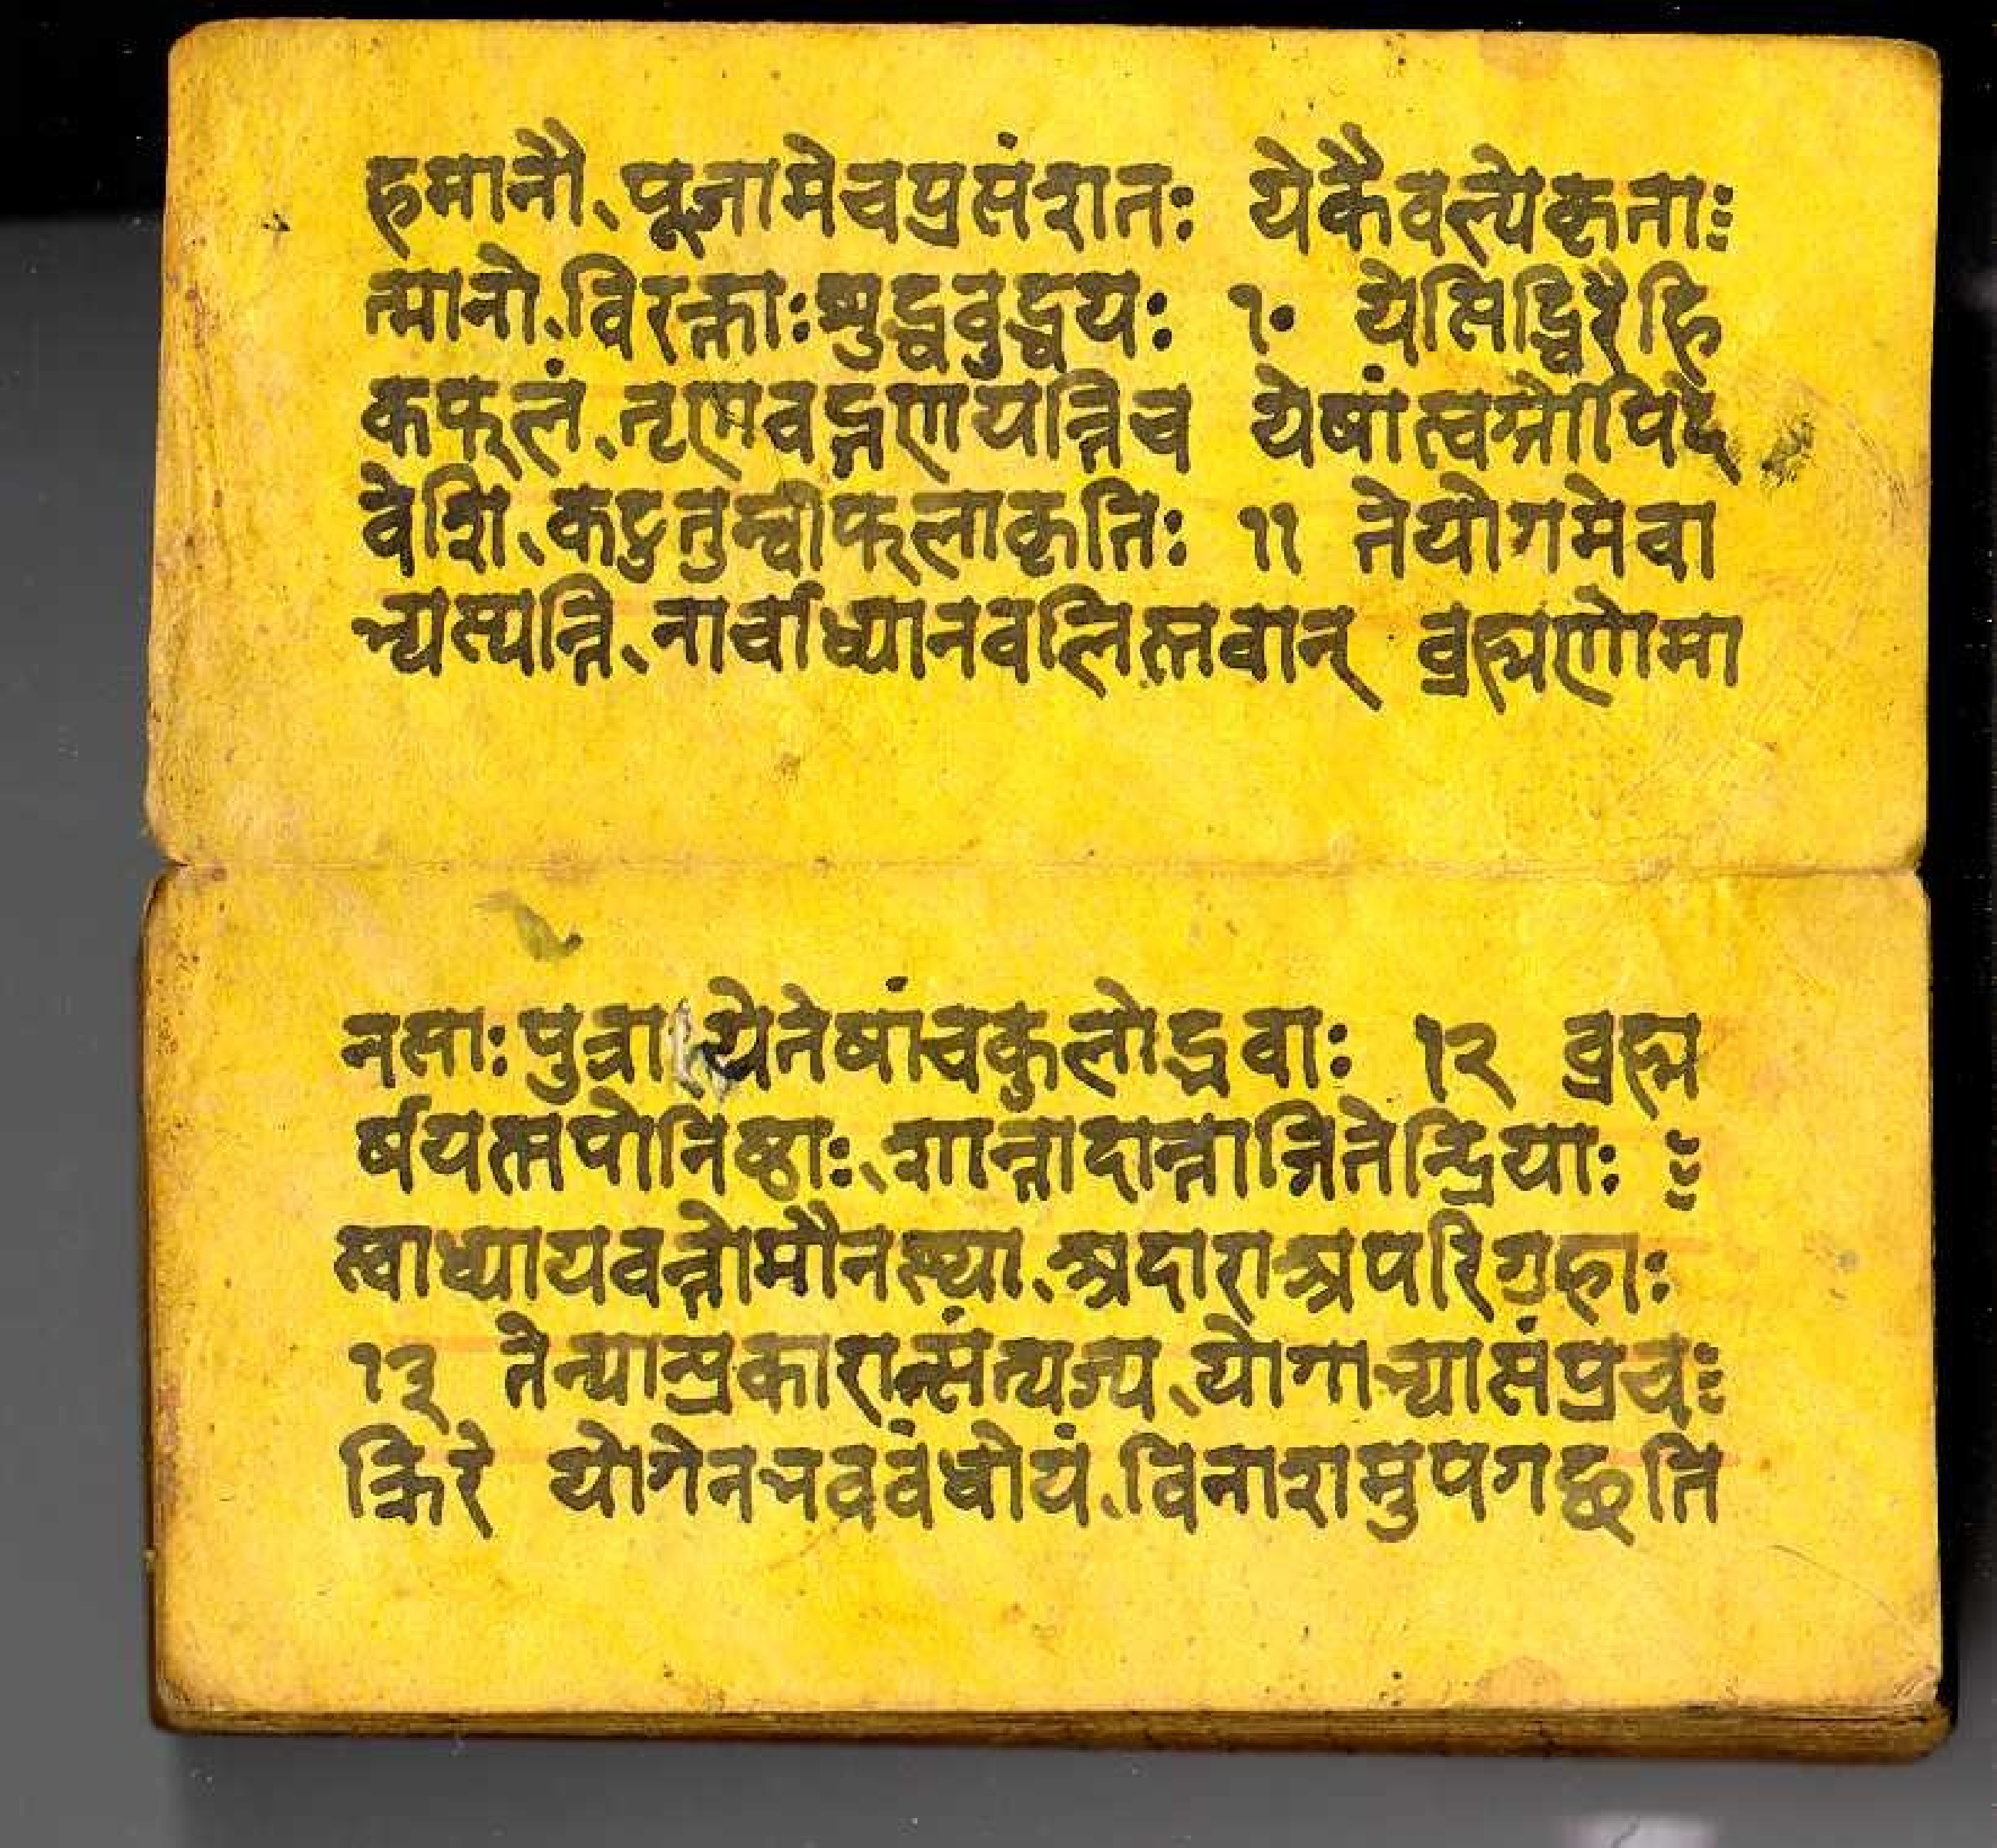 हमानौ पूजामेवप्रसंशतः येकैवल्येकृता
त्मानो विरक्ताःशुद्धबुद्धयः १० येसिद्धिरैहि
कफलं तृणवद्गणयन्तिच येषांत्वग्नोपिदे
वेशि कटुतुम्बीफलाकृतिः ११ तेयोगमेवा
भ्यस्यन्ति नार्वाध्यानवलित्तवान् व्रह्मणोमा
नसाःपुत्रा येतेषांचकुलोद्भवाः १२ व्रह्म
र्षयस्तपोनिष्ठाः शान्तादान्ताजितेन्द्रियाः
स्वाध्यायवन्तोमौनस्था अदाराअपरिग्रहाः
१३ तैन्याम्प्रकारान्संत्यज्य योगाभ्यासंप्रच
क्रिरे योगेनभवबंधोयं विनाशमुपगच्छति